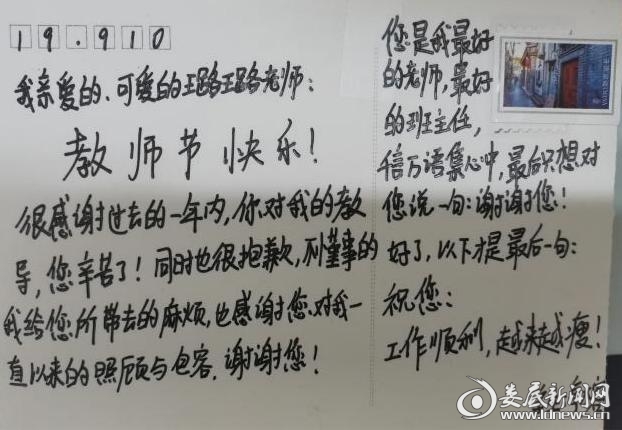 19.910
我亲爱的、可爱的璐璐老师:
教师节快乐!
很感谢过去的一年内,你对我的教
导,您辛苦了!同时也很抱歉,不懂事的
我给您所带去的麻烦,也感谢您对我一
直以来的照顾与包容,谢谢您!
您是我最好
的老师,最好
的班主任,
千言万语集心中,最后只想对
您说一句:谢谢您!
好了,以下才是最后一句:
祝您:
工作顺利,越来越瘦!
娄底新闻网
www.ldnews.cn